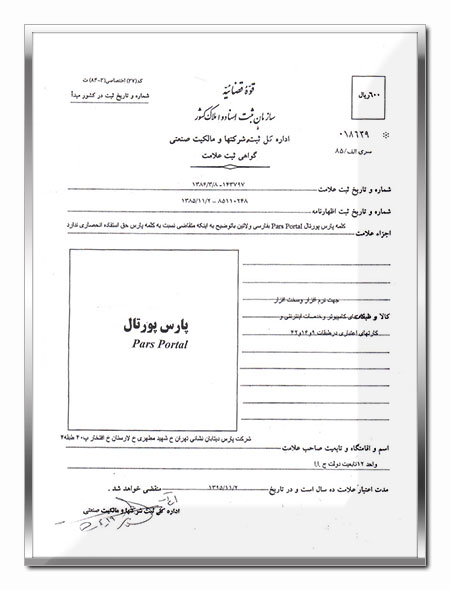 کد(۳۷) اختصاصی(۳-۸۴) ث
شماره و تاریخ ثبت در کشور مبدأ
قوهٔ قضائیه
سازمان ثبت اسناد و املاک کشور
اداره کل ثبت شرکتها و مالکیت صنعتی
گواهی ثبت علامت
۶۰۰ریال
۰۱۸۶۲۹
سری الف/۸۵
شماره و تاریخ ثبت علامت ۱۴۳۷۹۷-۱۳۸۶/۳/۸
شماره و تاریخ ثبت اظهارنامه ۸۵۱۱۰۲۴۸ – ۱۳۸۵/۱۱/۲
اجزاء علامت کلمه پارس پورتال Pars Portal بفارسی ولاتین باتوضیح به اینکه متقاضی نسبت به کلمه پارس حق استفاده انحصاری ندارد
پارس پورتال
Pars Portal
جهت نرم افزار وسخت افزار
کالا و طبقات های کامپیوتر وخدمات اینترنتی و
کارتهای اعتباری درطبقات ۹و۱۶و۴۲
اسم و اقامتگاه و تابعیت صاحب علامت شرکت پارس دیتابان نشانی تهران خ شهید مطهری خ لارستان خ افتخار پ۲۰ طبقه۴
واحد ۱۲تابعیت دولت ج ۱۱
مدت اعتبار علامت ده سال است و در تاریخ ۱۳۹۵/۱۱/۲ منقضی خواهد شد .
اداره کل ثبت شرکتها و مالکیت صنعتی